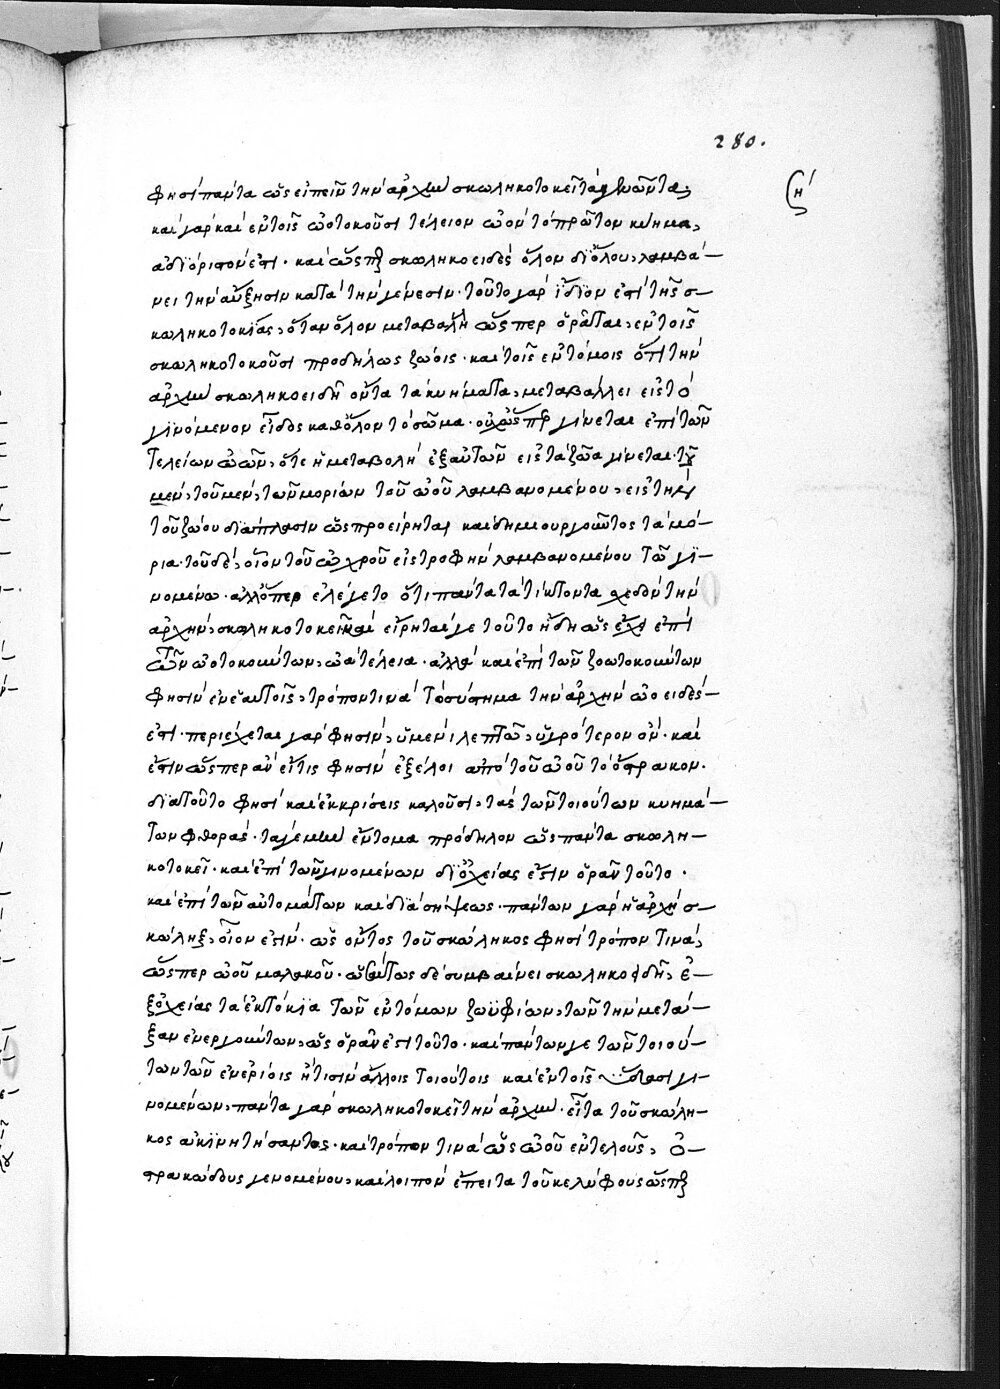 280.
ζη´
φησὶ πάντα ὡς εἰπεῖν τὴν ἀρχὴν σκωληκοτοκεῖ τὰ ζωοῦντα,
καὶ γὰρ καὶ ἐν τοῖς ὠοτοκοῦσι τέλειον ὠὸν τὸ πρῶτον κύημα,
ἀδιόριστόν ἐστι. καὶ ὥσπερ σκωληκοειδὲς ὅλον δι᾽ ὅλου, λαμβά-
νει τὴν αὔξησιν κατὰ τὴν γένεσιν. τοῦτο γὰρ ἴδιον ἐπὶ τῆς σ-
κωληκοτοκίας, ὅταν ὅλον μεταβαλῇ ὥσπερ ὁρᾶται, ἐν τοῖς
σκωληκοτοκοῦσι προδήλως ζώοις. καὶ τοῖς ἐντόμοις ὅτι τὴν
ἀρχὴν σκωληκοειδῆ ὄντα τὰ κυήματα, μεταβάλλει εἰς τὸ
γινόμενον εἶδος καθόλον τὸ σῶμα. οὐχ ὥσπερ γίνεται ἐπὶ τῶν
τελείων ὠῶν, ὅτε ἡ μεταβολὴ ἐξ αὐτῶν εἰς τὰ ζῶα γίνεται. τοῦ
μὲν, τοῦ μὲν, τῶν μορίων τοῦ ὠοῦ λαμβανομένου, εἰς τὴν
τοῦ ζώου διάπλασιν ὡς προείρηται καὶ δημιουργοῦντος τὰ μό-
ρια. τοῦ δὲ, οἷον τοῦ ὠχροῦ εἰς τροφὴν λαμβανομένου τῶ γι-
νομένω. ἀλλ᾽ ὅπερ ἐλέγετο ὅτι πάντα τὰ τίκτοντα σχεδὸν τὴν
ἀρχὴν, σκωληκοτοκεῖν καὶ εἴρηταί γε τοῦτο ἤδη ὡς ἔχει ἐπὶ
τῶν ὠοτοκούντων, ὠὰ τέλεια. ἀλλὰ καὶ ἐπὶ τῶν ζωοτοκούντων
φησὶν ἐν ἑαυτοῖς, τρόπον τινὰ τὸ σύστημα τὴν ἀρχὴν ὠοειδές-
ἐστι. περιέχεται γὰρ φησὶν, ὑμένι λεπτῶ, ὑγρότερον ὄν. καὶ
ἔστιν ὥσπερ ἂν εἴ τις φησὶν ἐξέλοι ἀπὸ τοῦ ὠοῦ τὸ ὄστρακον.
διὰ τοῦτο φησὶ καὶ ἐκκρίσεις καλοῦσι, τὰς τῶν τοιούτων κυημά-
των φθοράς. τὰ γέμὴν ἔντομα πρόδηλον ὡς πάντα σκωλη-
κοτοκεῖ. καὶ ἐπὶ τῶν γινομένων δι᾽ ὀχείας ἔστιν ὁρᾶν τοῦτο.
καὶ ἐπὶ τῶν αὐτομάτων καὶ διὰ σήψεως. πάντων γὰρ ἡ ἀρχὴ σ-
κώληξ, οἷον ἐστίν. ὡς ὄντος τοῦ σκώληκος φησὶ τρόπον τινὰ,
ὥσπερ ὠοῦ μαλακοῦ. ὡσαύτως δὲ συμβαίνει σκωληκοειδῆ, ἐ-
ξ ὀχείας τὰ ἐκτόκια τῶν ἐντόμων ζωϋφίων, τῶν τὴν μέτα-
ξαν ἐνεργούντων, ὡς ὁρᾶν ἔστι τοῦτο. καὶ πάντων γε τῶν τοιού-
των τῶν ἐν ἐρίοις ἤ τισιν ἄλλοις τοιούτοις καὶ ἐν τοῖς ὕδασι γι-
νομένων, πάντα γὰρ σκωληκοτοκεῖ τὴν ἀρχὴν. εἶτα τοῦ σκώλη-
κος ἀκινητήσαντος. καὶ τρόπον τινὰ ὡς ὠοῦ ἐντελοῦς, ὀ-
στρακώδους γενομένου, καὶ λοιπὸν ἔπειτα τοῦ κελύφους ὥσπερ